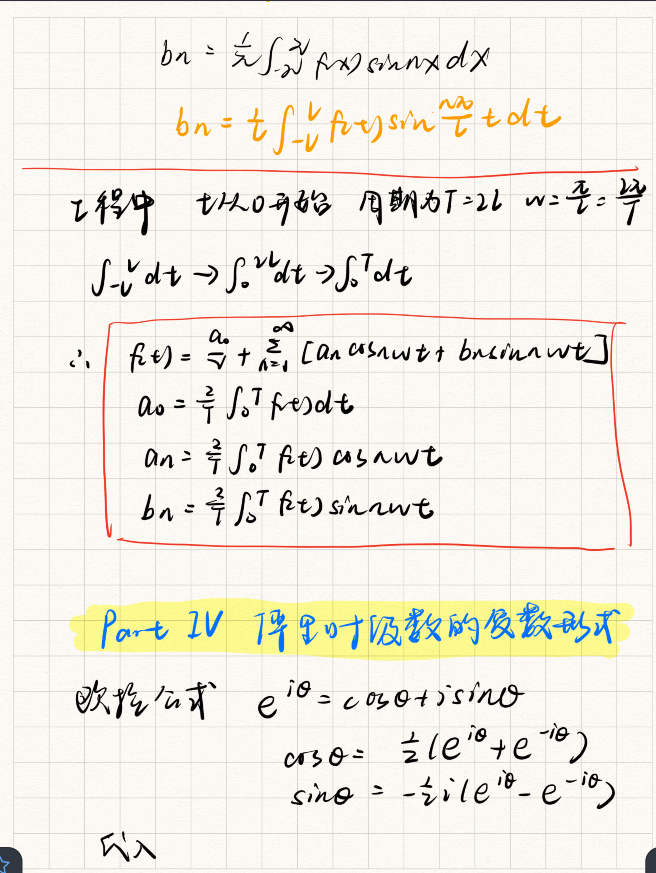 bn = 1/π ∫_{-π}^{π} f(x) sin nx dx
bn = 1/L ∫_{-L}^{L} f(t) sin nπ/L t dt
工程中 t从0开始 周期为T=2L w=π/L=2π/T
∫_{-L}^{L} dt → ∫_0^{2L} dt → ∫_0^T dt
∴ f(t) = a₀/2 + ∑_{n=1}^{∞} [an cosnwt + bn sinnwt]
a₀ = 2/T ∫_0^T f(t)dt
an = 2/T ∫_0^T f(t) cosnwt
bn = 2/T ∫_0^T f(t) sinnwt
Part IV 傅里叶级数的复数形式
欧拉公式 e^{iθ} = cosθ + i sinθ
cosθ = 1/2 (e^{iθ} + e^{-iθ})
sinθ = -1/2 i (e^{iθ} - e^{-iθ})
代入